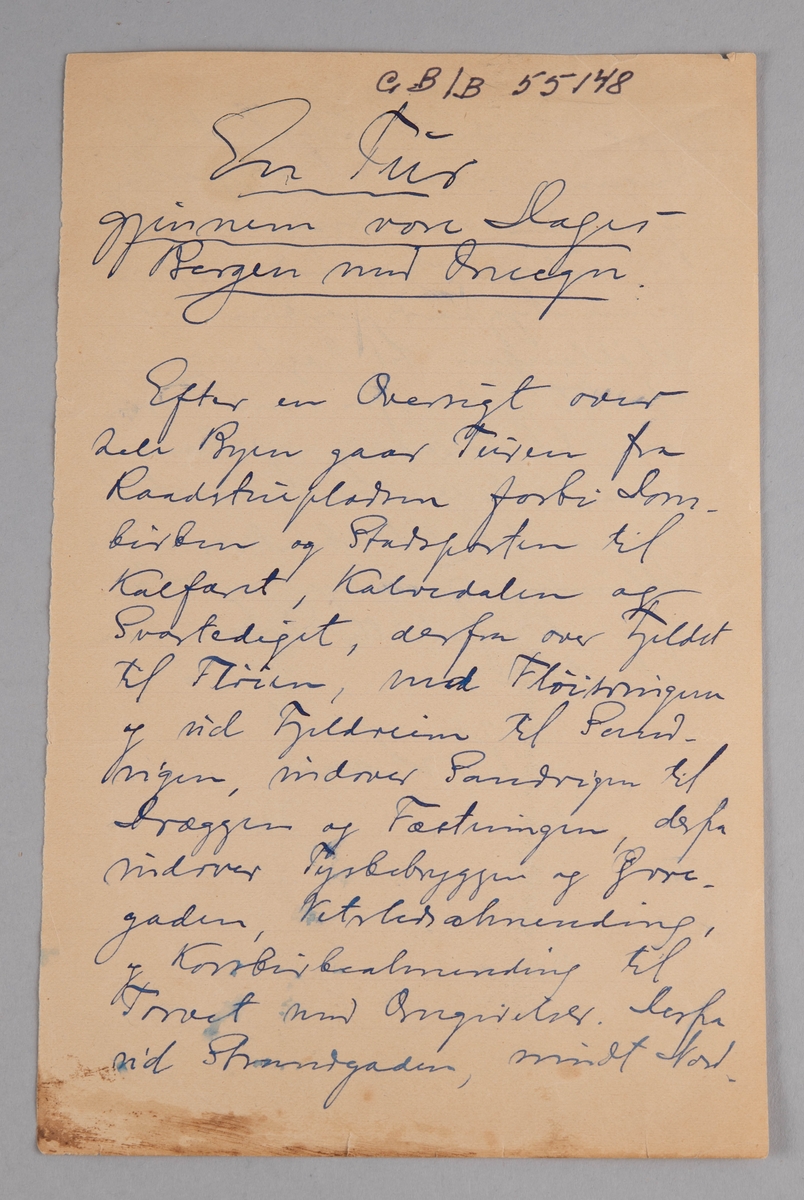 GB/B 55148
En Tur
gjennem vore Dages
Bergen med Omegn.
Efter en Oversigt over
hele Byen gaar Turen fra
Raadstuepladsen forbi Dom-
kirken og Stadsporten til
Kalfaret, Kalvedalen og
Svartediget, derfra over Fjeldet
til Fløien, ned Fløisvingene
og ud Fjeldveien til Sand-
vigen, indover Sandvigen til
Dræggen og Fæstningen, derfra
indover Tyskebryggen og Øvre-
gaden, Vetrlidsalmending,
og Korskirkealmending til
Torvet med Omgivelser. Derfra
ud Strandgaden, rundt Nord-